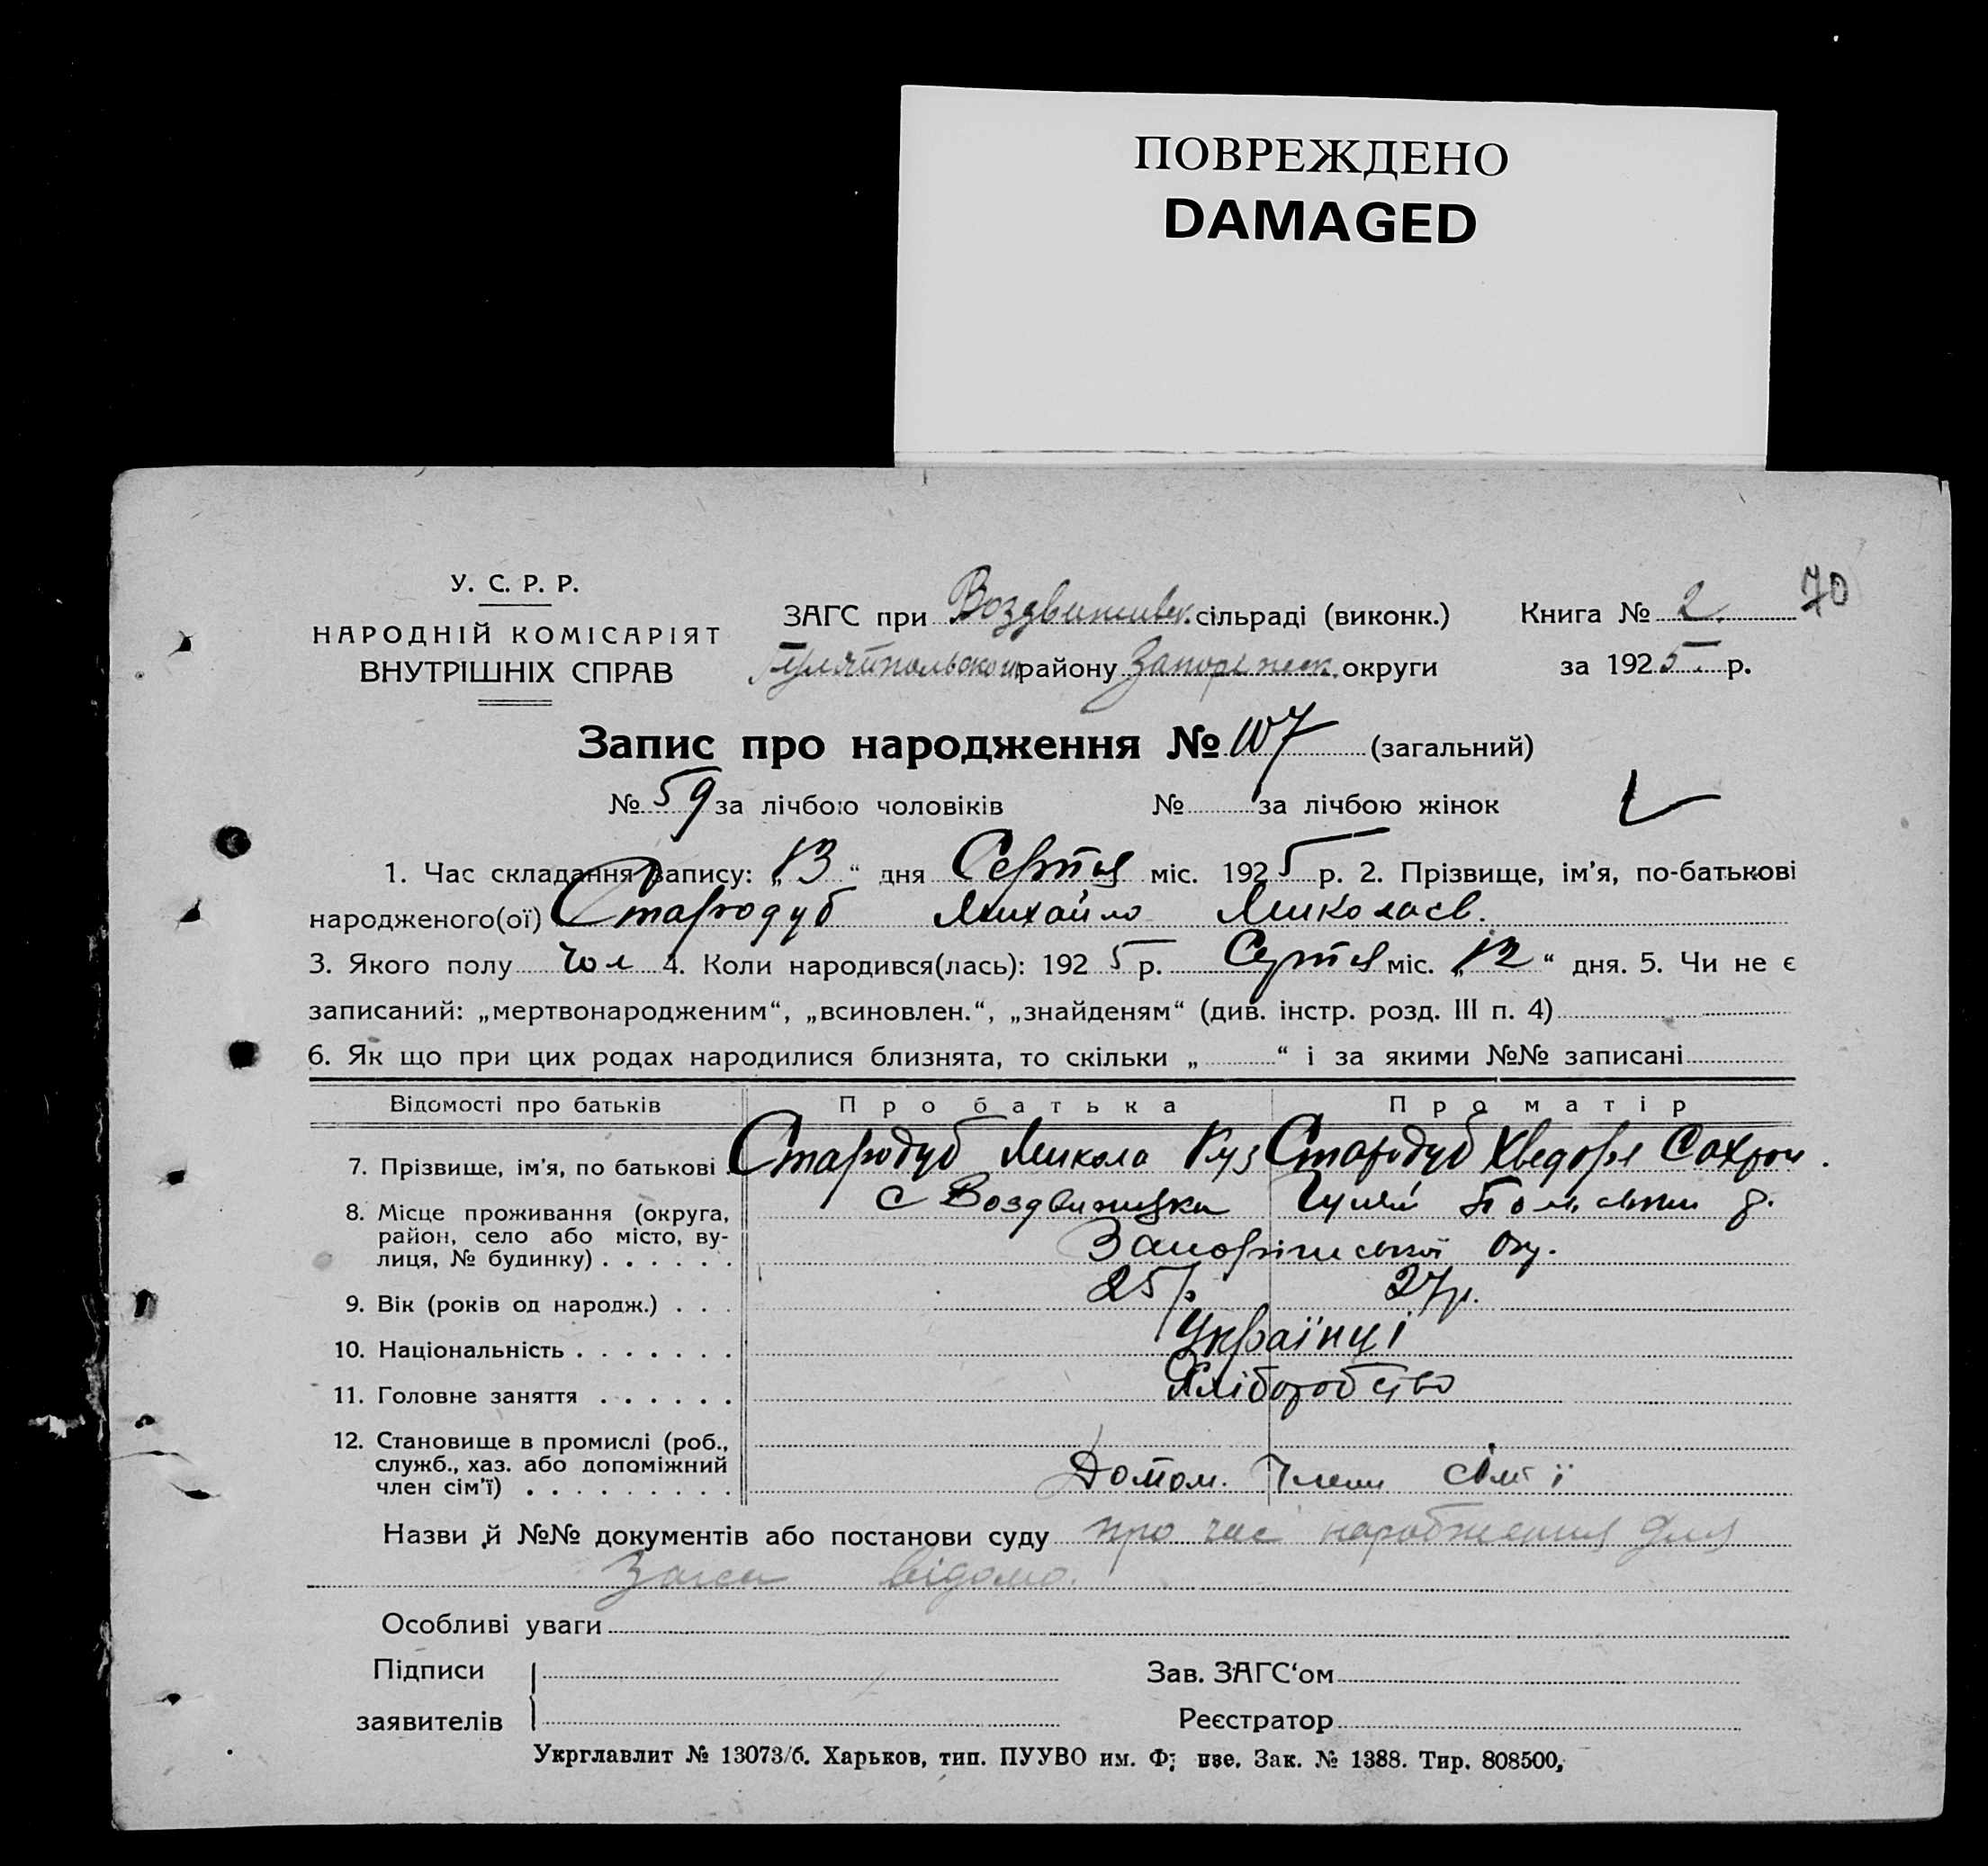 ПОВРЕЖДЕНО
DAMAGED
70
У. С. Р. Р.
НАРОДНІЙ КОМІСАРІЯТ
ВНУТРІШНІХ СПРАВ
ЗАГС при Воздвижівск. сільраді (виконк.) Книга № 2.
Гуляйпольского району Запоріжск. округи за 1925 р.
Запис про народження № 107 (загальний)
№ 59 за лічбою чоловіків № за лічбою жінок
1. Час складання запису: „13“ дня Серпня міс. 1925 р. 2. Прізвище, ім'я, по-батькові
народженого(ої) Стародуб Михайло Миколаєв.
3. Якого полу чол 4. Коли народився(лась): 1925 р. Серпня міс. „12“ дня. 5. Чи не є
записаний: „мертвонародженим“, „всиновлен.“, „знайденям“ (див. інстр. розд. III п. 4)
6. Як що при цих родах народилися близнята, то скільки „ “ і за якими №№ записані
Відомості про батьків Про батька Про матір
7. Прізвище, ім'я, по батькові Стародуб Микола Куз Стародуб Хведора Сахрон.
8. Місце проживання (округа, район, село або місто, вулиця, № будинку) с Воздвижка Гуляй Польськи р.
Запоріжської Окр.
9. Вік (років од народж.) 25 р. 27 р.
10. Національність Українці
11. Головне заняття Хліборобство
12. Становище в промислі (роб., служб., хаз. або допоміжний член сім'ї) Допом. Члени сім'ї
Назви й №№ документів або постанови суду про час народження для
Загса відомо.
Особливі уваги
Підписи Зав. ЗАГС'ом
заявителів Реєстратор
Укрглавлит № 13073/б. Харьков, тип. ПУУВО им. Зак. № 1388. Тир. 808500,